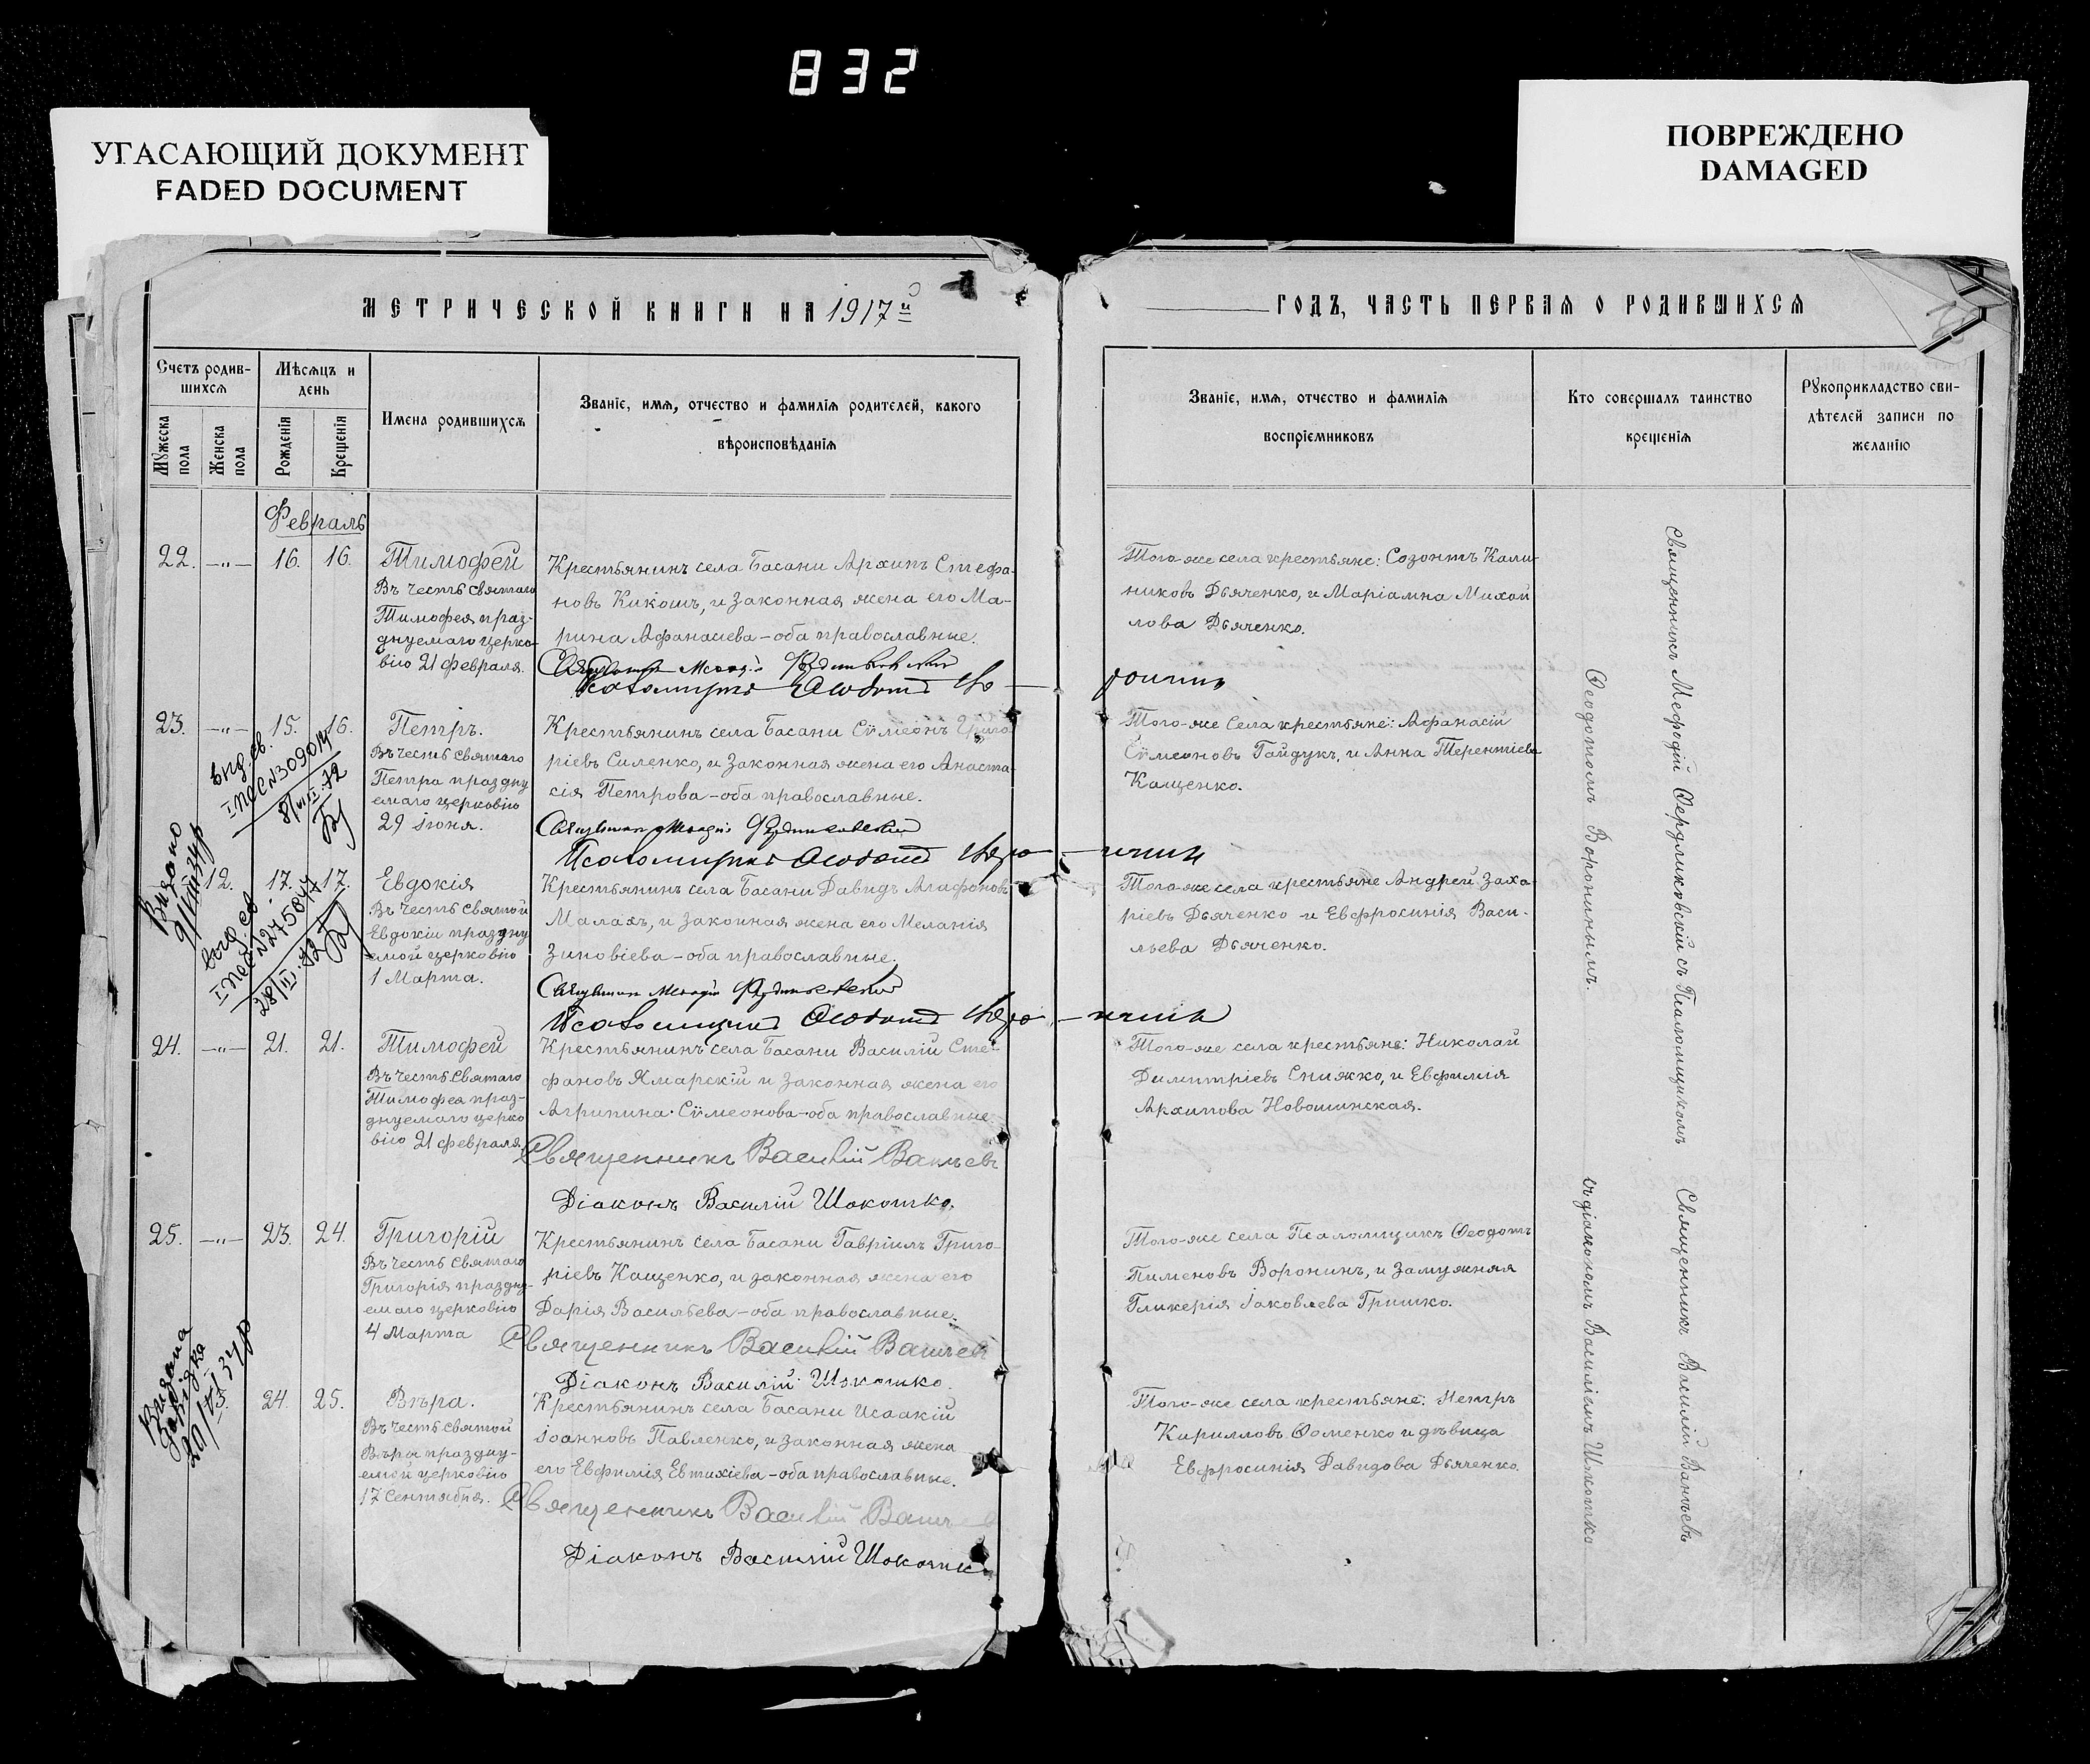 832
УГАСАЮЩИЙ ДОКУМЕНТ
FADED DOCUMENT
ПОВРЕЖДЕНО
DAMAGED
МЕТРИЧЕСКОЙ КНИГИ НА 1917й
ГОДЪ, ЧАСТЬ ПЕРВАЯ О РОДИВШИХСЯ
Счетъ родив-
шихся
Мужеска
пола
Женска
пола
Мѣсяцъ и
день
Рожденія
Крещенія
Имена родившихся
Званіе, имя, отчество и фамилія родителей, какого
вѣроисповѣданія
Званіе, имя, отчество и фамилія
воспріемниковъ
Кто совершалъ таинство
крещенія
Рукоприкладство сви-
дѣтелей записи по
желанію
Февраль
22. —"— 16. 16.
Тимофей
Въ честь святаго
Тимофея праз-
днуемаго церко-
вію 21 февраля.
Крестьянинъ села Басани Архипъ Стефа-
новъ Кикотъ, и законная жена его Ма-
рина Афанасіева - оба православные.
Псаломщикъ Феодотъ Во - ронинъ
Того-же села крестьяне: Созонтъ Кали-
никовъ Дьяченко, и Маріамна Михай
лова Дьяченко.
23. —"— 15. 16.
Петръ.
Въ честь святаго
Петра праздну
емаго церковію
29 іюня.
Крестьянинъ села Басани Сѵмеонъ Григо
ріевъ Силенко, и законная жена его Анаста-
сія Петрова - оба православные.
Псаломщикъ Феодотъ Воро - нинъ
Того-же села крестьяне: Афанасій
Сѵмеоновъ Гайдукъ, и Анна Терентіева
Кащенко.
I ПСС N309014
Видано
12. 17. 17.
Евдокія
Въ честь святой
Евдокіи праздну
емой церковію
1 Марта.
Крестьянинъ села Басани Давидъ Агафоновъ
Малахъ, и законная жена его Меланія
Зиновіева - оба православные.
Псаломщикъ Феодотъ Воро - нинъ
Того-же села крестьяне Андрей Заха-
ріевъ Дьяченко и Евфросинія Васи-
льева Дьяченко.
24. —"— 21. 21.
Тимофей
Въ честь святаго
Тимофея праз-
днуемаго церко
вію 21 февраля
Крестьянинъ села Басани Василій Сте-
фановъ Ямарскій и законная жена его
Агрипина Сѵмеонова - оба православные
Священникъ Василій Ванчевъ
Діаконъ Василій Шокотко.
Того-же села крестьяне: Николай
Димитріевъ Снижко, и Евфимія
Архипова Новошинская.
25. —"— 23. 24.
Григорій
Въ честь святаго
Григорія праздну-
емаго церковію
4 Марта
Крестьянинъ села Басани Гавріилъ Григо-
ріевъ Кащенко, и законная жена его
Дарія Васильева - оба православные.
Священникъ Василій Ванчевъ
Діаконъ Василій Шокотко.
Того-же села Псаломщикъ Феодотъ
Пименовъ Воронинъ, и замужняя
Гликерія Іаковлева Гришко.
Видана
24. 25.
Вѣра.
Въ честь святой
Вѣры праздну-
емой церковію
17 сентября.
Крестьянинъ села Басани Исаакій
Іоанновъ Павленко, и законная жена
его Евфимія Евтихіева - оба православные.
Священникъ Василій Ванчев
Діаконъ Василій Шокотк
Того-же села крестьяне: Петръ
Кирилловъ Фоменко и дѣвица
Евфросинія Давидова Дьяченко.
Священникъ Мефодій Фердликовскій съ Псаломщикомъ
Феодотомъ Воронинымъ.
Священникъ Василій Ванчевъ
съ діакономъ Василіемъ Шокотко